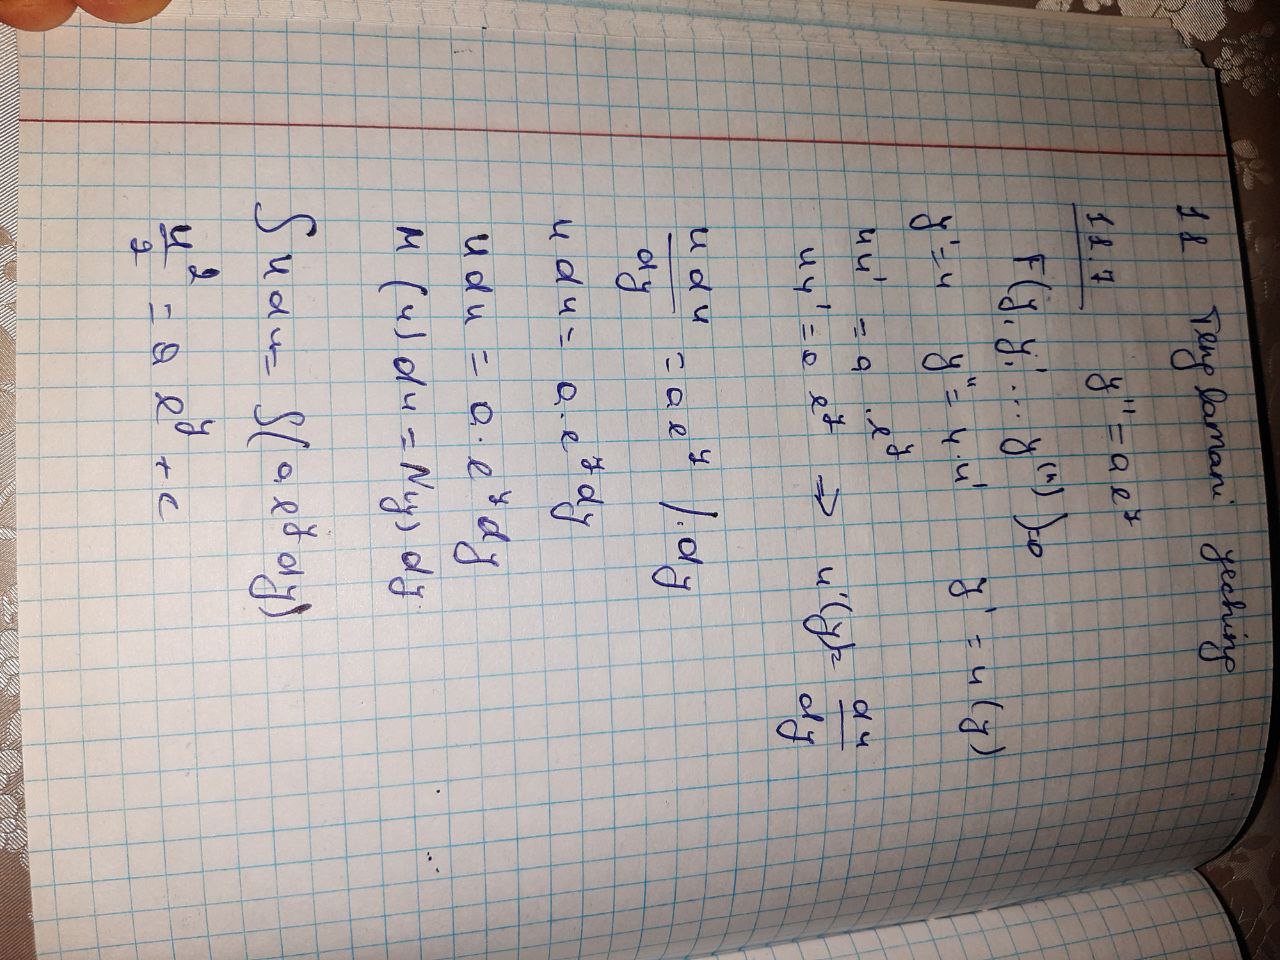 12 Tenglamani yeching
12.7 y'' = a e^y
F(y, y', ... y^(n)) = 0
y' = u y'' = u·u' y' = u(y)
uu' = a·e^y
uy' = a e^y ⇒ u'(y) = du/dy
u du/dy = a e^y /·dy
u du = a·e^y dy
u du = a·e^y dy
M(u) du = N(y) dy
∫ u du = ∫(a e^y dy)
u^2/2 = a e^y + c